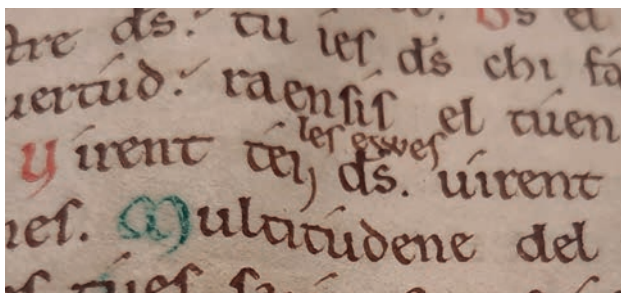 Ds el
tre ds.' tu ieſ ds chi fa
uertúd.' raenſiſ el túen
leſ eweſ
Uirent tei ds. uirent
neſ. Multitúdene del